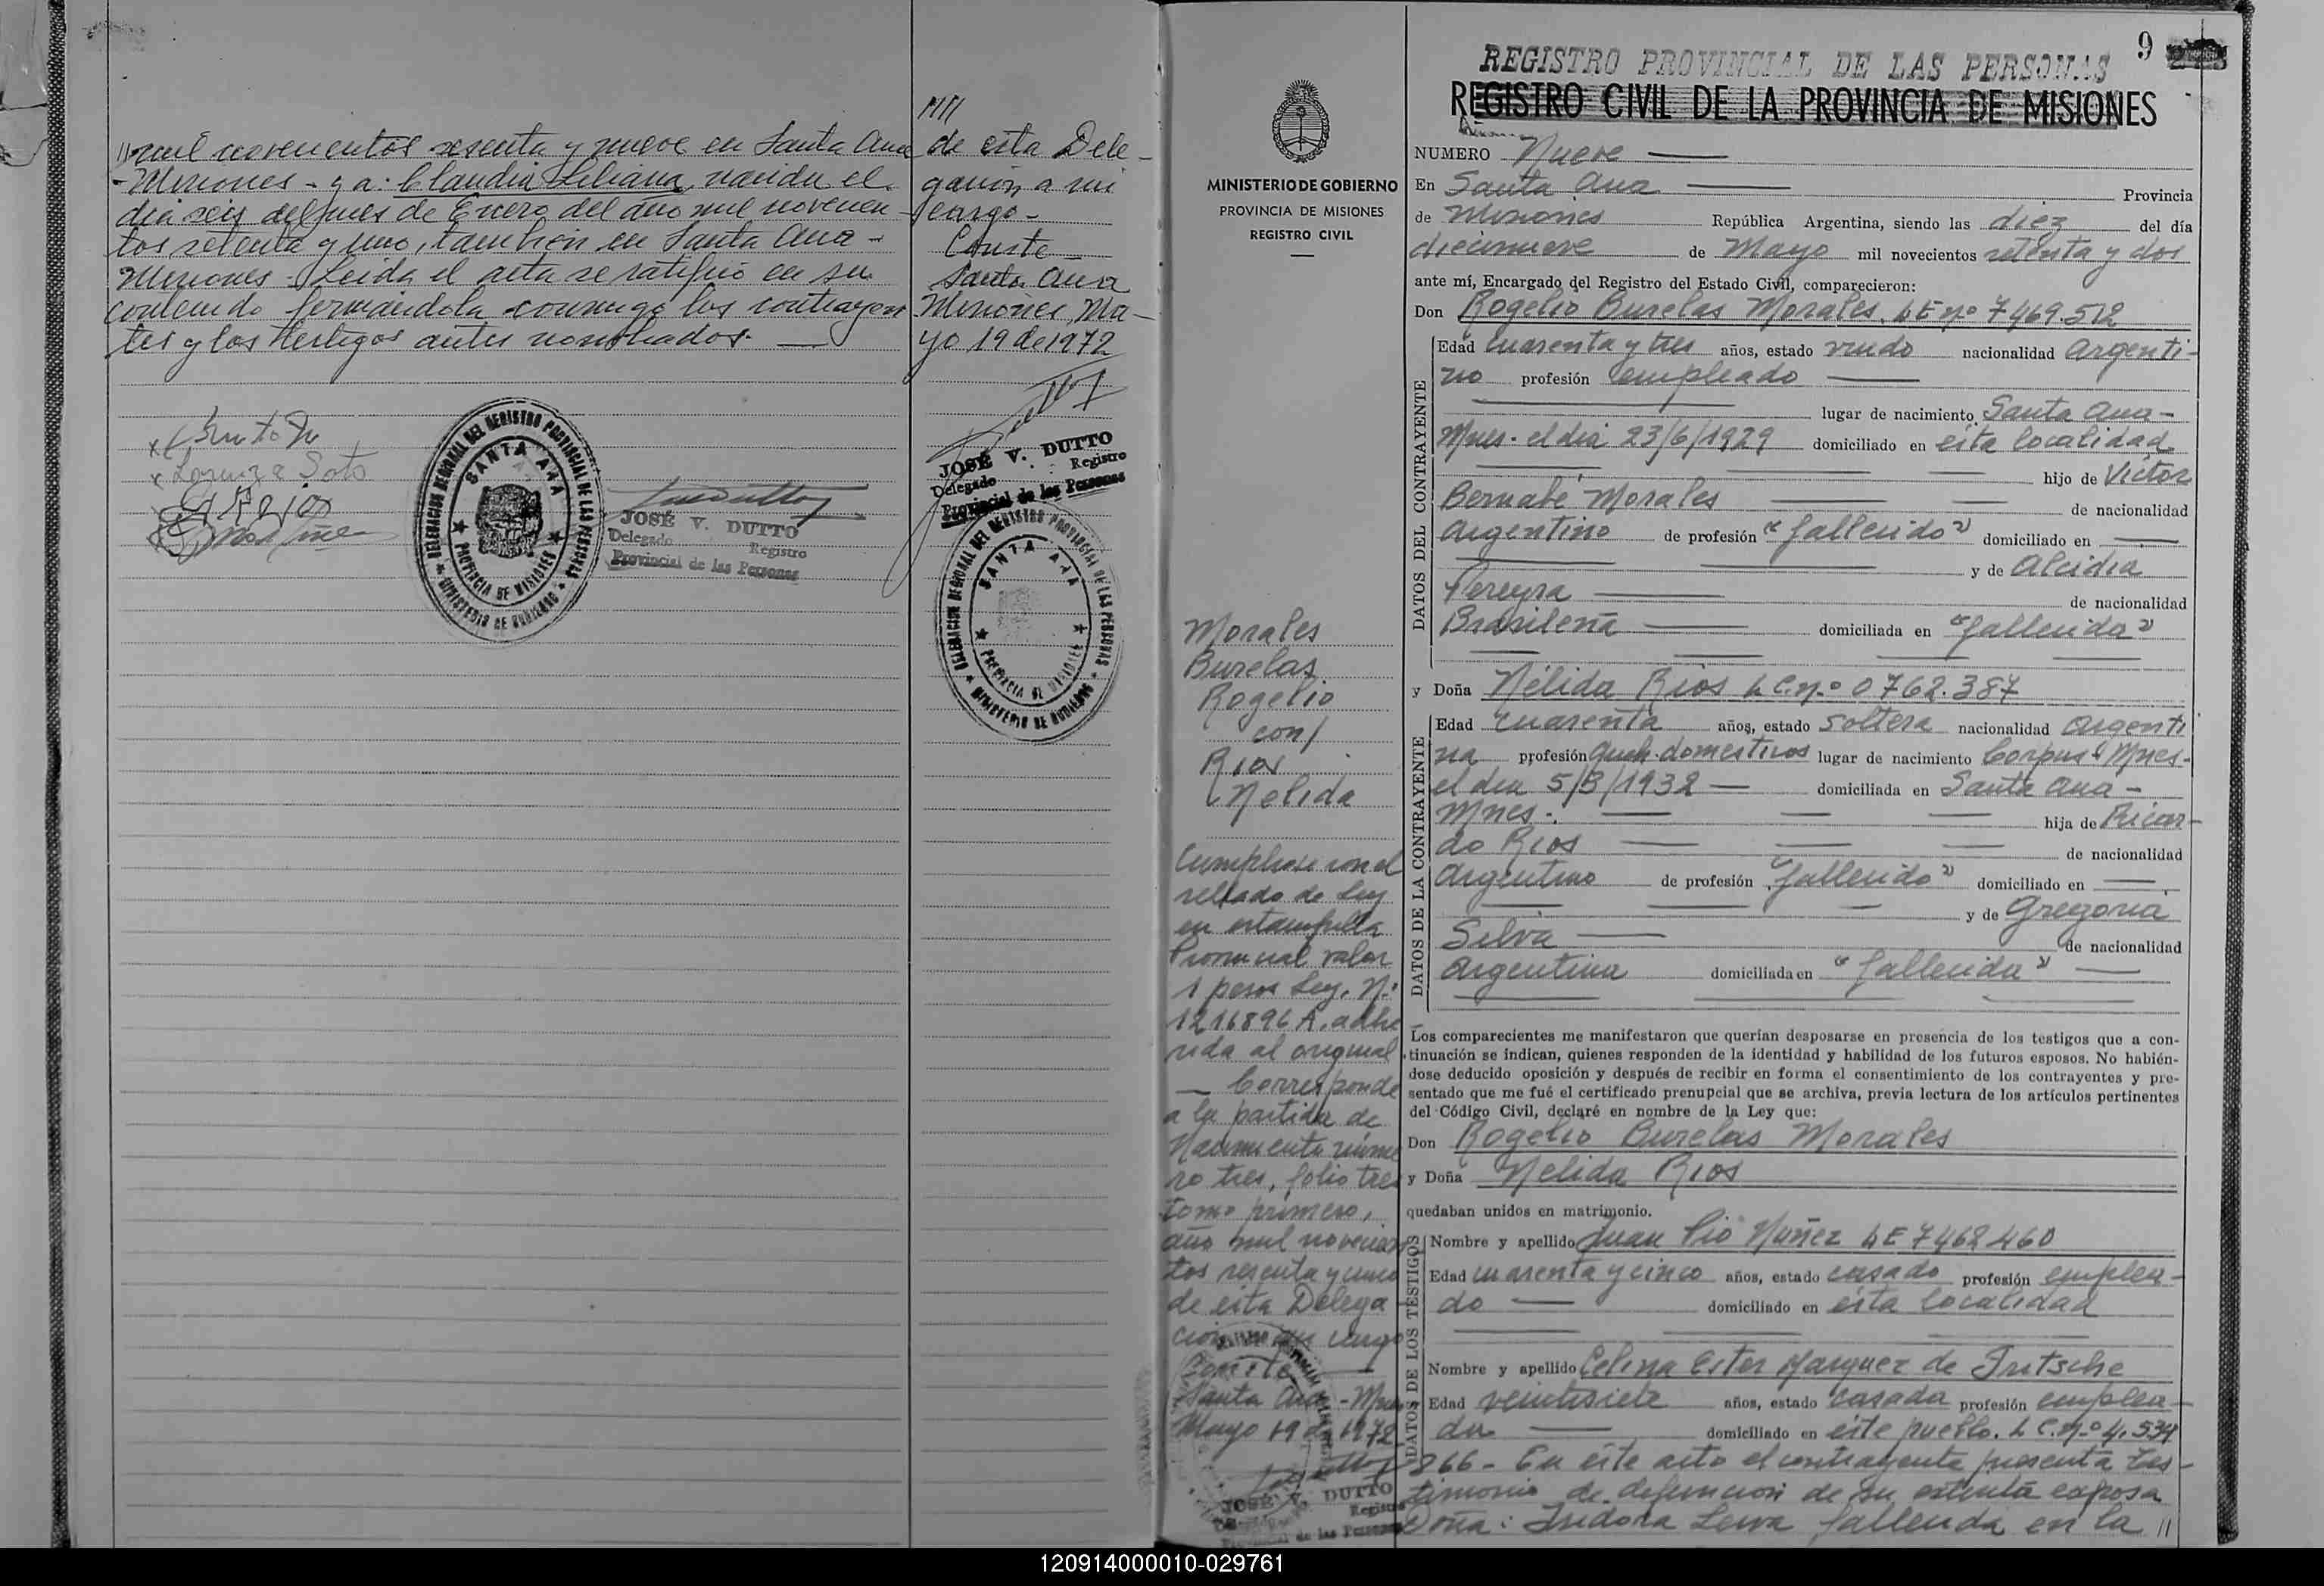 // mil novecientos sesenta y nueve en Santa Ana
- Misiones - y a: Claudia Liliana, nacida el
día seis del mes de Enero del año mil novecien
tos setenta y uno, también en Santa Ana -
Misiones - Leida el acta se ratificó en su
contenido firmándola conmigo los contrayen
tes y los testigos antes nombrados. —
Lorenza Soto
DELEGACION REGIONAL DEL REGISTRO PROVINCIAL DE LAS PERSONAS
SANTA ANA
PROVINCIA DE MISIONES
MINISTERIO DE GOBIERNO
JOSÉ V. DUTTO
Delegado Registro
Provincial de las Personas
////
de esta Dele -
gación a mi
cargo -
Conste -
Santa Ana
Misiones, Ma -
yo 19 de 1972
JOSÉ V. DUTTO
Delegado Registro
Provincial de las Personas
DELEGACION REGIONAL DEL REGISTRO PROVINCIAL DE LAS PERSONAS
SANTA ANA
PROVINCIA DE MISIONES
MINISTERIO DE GOBIERNO
MINISTERIO DE GOBIERNO
PROVINCIA DE MISIONES
REGISTRO CIVIL
Morales
Burelas
Rogelio
con/
Rios
Nelida
Cumplese con el
sellado de Ley
en estampilla
Provincial valor
1 pesos Ley, Nº
1216896 A, adhe
rida al original
— Corresponde
a la partida de
Nacimiento núme
ro tres, folio tres
tomo primero,
año mil novecien
tos sesenta y uno
de esta Delega
ción a mi cargo
Conste
Santa Ana - Mnes
Mayo 19 de 1972
JOSÉ V. DUTTO
Registro
Provincial de las Personas
9
REGISTRO PROVINCIAL DE LAS PERSONAS
REGISTRO CIVIL DE LA PROVINCIA DE MISIONES
NUMERO Nueve —
En Santa Ana — Provincia
de Misiones República Argentina, siendo las diez del día
diecinueve de Mayo mil novecientos setenta y dos
ante mí, Encargado del Registro del Estado Civil, comparecieron:
Don Rogelio Burelas Morales. L E nº 7469.512
DATOS DEL CONTRAYENTE
Edad cuarenta y tres años, estado viudo nacionalidad Argenti-
no profesión empleado —
— lugar de nacimiento Santa Ana -
Mnes. el dia 23/6/1929 domiciliado en esta localidad
— hijo de Victor
Bernabé Morales — de nacionalidad
Argentino de profesión "fallecido" domiciliado en —
— y de Alcidia
Pereyra — de nacionalidad
Brasileña — domiciliada en "fallecida"
y Doña Nélida Rios L C. nº 0762.387
DATOS DE LA CONTRAYENTE
Edad cuarenta años, estado soltera nacionalidad Argenti
na profesión queh. domesticos lugar de nacimiento Corpus - Mnes-
el dia 5/3/1932 — domiciliada en Santa Ana -
Mnes. — hija de Ricar-
do Rios — de nacionalidad
Argentino de profesión "fallecido" domiciliado en —
— y de Gregoria
Silva — de nacionalidad
Argentina domiciliada en "fallecida" —
Los comparecientes me manifestaron que querían desposarse en presencia de los testigos que a con-
tinuación se indican, quienes responden de la identidad y habilidad de los futuros esposos. No habién-
dose deducido oposición y después de recibir en forma el consentimiento de los contrayentes y pre-
sentado que me fué el certificado prenupcial que se archiva, previa lectura de los artículos pertinentes
del Código Civil, declaré en nombre de la Ley que:
Don Rogelio Burelas Morales
y Doña Nelida Rios
quedaban unidos en matrimonio.
DATOS DE LOS TESTIGOS
Nombre y apellido Juan Pio Nuñez L E 7462460
Edad cuarenta y cinco años, estado casado profesión emplea-
do — domiciliado en esta localidad
Nombre y apellido Celina Ester Marquez de Fritsche
Edad veintisiete años, estado casada profesión emplea -
da — domiciliado en este pueblo. L C. nº 4.539
866 - En este acto el contrayente presenta tes -
timonio de defunción de su extinta esposa
Doña: Isidora Leiva fallecida en la //
120914000010-029761